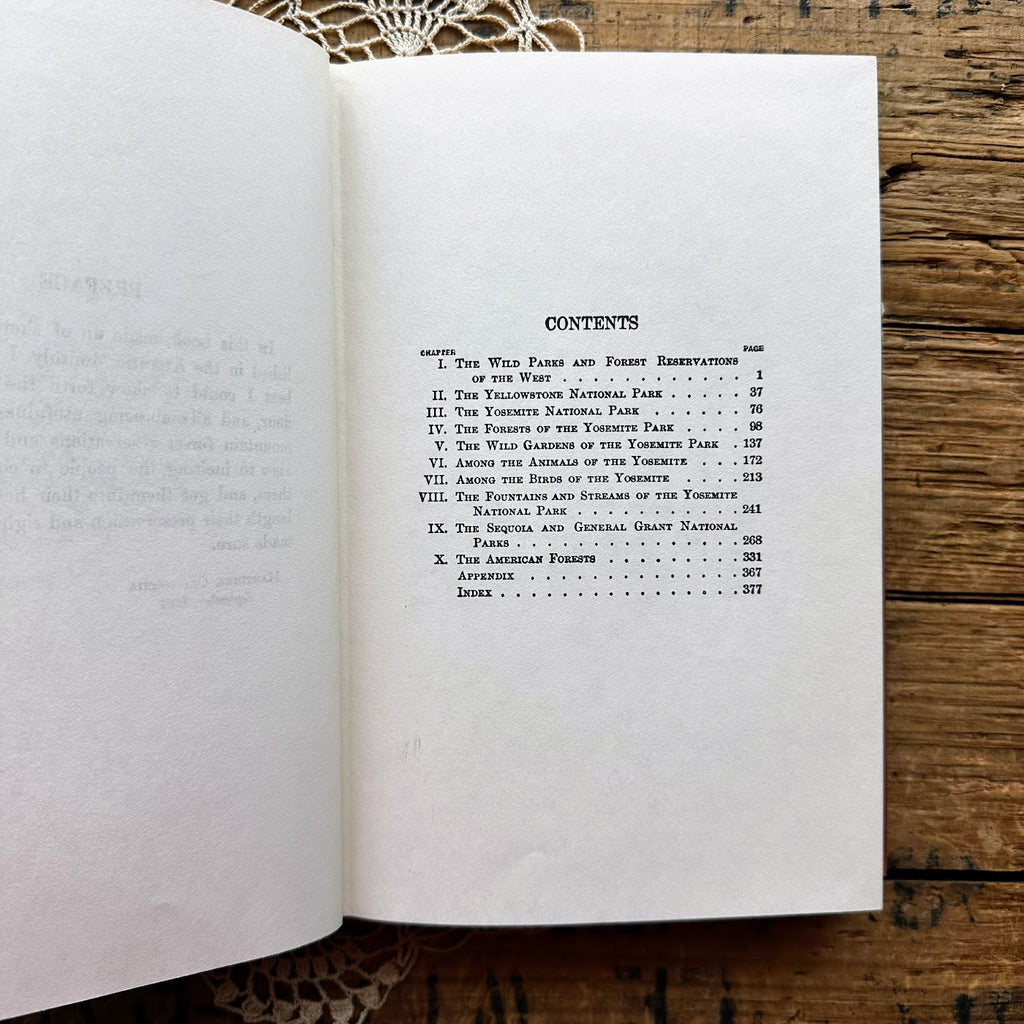 CONTENTS
CHAPTER PAGE
I. The Wild Parks and Forest Reservations
of the West . . . . . . . . . . . . 1
II. The Yellowstone National Park . . . . . 37
III. The Yosemite National Park . . . . . . 76
IV. The Forests of the Yosemite Park . . . . 98
V. The Wild Gardens of the Yosemite Park . 137
VI. Among the Animals of the Yosemite . . . 172
VII. Among the Birds of the Yosemite . . . . 213
VIII. The Fountains and Streams of the Yosemite
National Park . . . . . . . . . . . 241
IX. The Sequoia and General Grant National
Parks . . . . . . . . . . . . . . . 268
X. The American Forests . . . . . . . . . 331
Appendix . . . . . . . . . . . . . . 367
Index . . . . . . . . . . . . . . . . 377